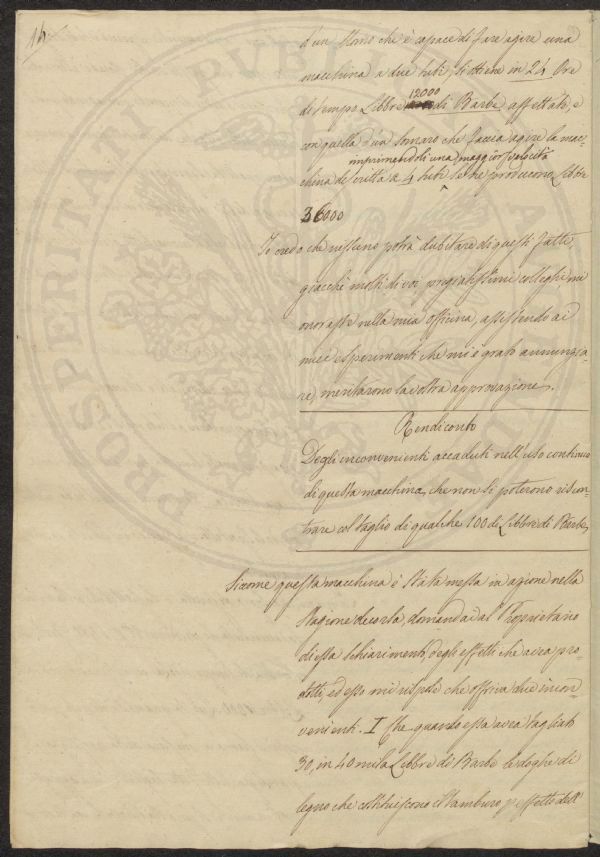 14
d'un Uomo che è capace di fare agire una
macchina a due tubi, si ottiene in 24 Ore
di tempo Libbre 12000 di Barbe affettate, e
con quella d'un Somaro che faccia agire la mac-
imprimendoli una maggior velocità
china descritta a 4 tubi se ne producono Libbre
36000
Io credo che nessuno potrà dubitare di questi fatti,
giacchè molti di voi pregiatissimi colleghi mi
onoraste nella mia officina, assistendo ai
miei esperimenti che mi è grato annunzia-
re, meritarono la vostra approvazione.
Rendiconto
Degli inconvenienti accaduti nell'uso continuo
di questa macchina, che non si poterono riscon-
trare col taglio di qualche 100 di Libbre di Barbe.
Siccome questa macchina è stata messa in azione nella
Stagione decorsa, domandai al Proprietario
di essa schiarimenti degli effetti che avea pro-
dotti, ed esso mi rispose che offriva due incon-
venienti. I Che quando essa avea tagliato
30, in 40 mila Libbre di Barbe le doghe di
legno che costituiscono il tamburo, p effetto dell'
PROSPERITAS PUBLICA